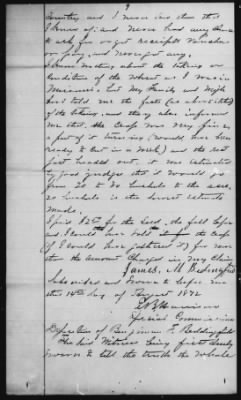 9
Country and I never saw them that
I know of, and never had any chance
to ask for or get receipts Voucher
or pay, and never got any.
I know nothing about the taking or
Condition of the Wheat as I was in
Missouri, but My Family and Neigh
bors told me the facts (as above stated)
of the taking, and they also informed
me that the Crop was very fine,
a part of it was ripe (would have been
ready to cut in a week) and the rest
just headed out, it was estimated
by good judges that it would go
from 20 to 30 bushels to the acre,
20 bushels is the lowest estimate
made.
I paid $2 for the seed, the full crop
and I could have sold it the Crop
(if I could have pastured it) for more
than the amount Charged in my Claim
James. M Bedingfield
Subscribed and Sworn to before me
this 14th day of August 1872
Special Commissioner
Deposition of Benjamin F. Beddingfield
The said Witness being first duly
sworn to tell the truth the whole